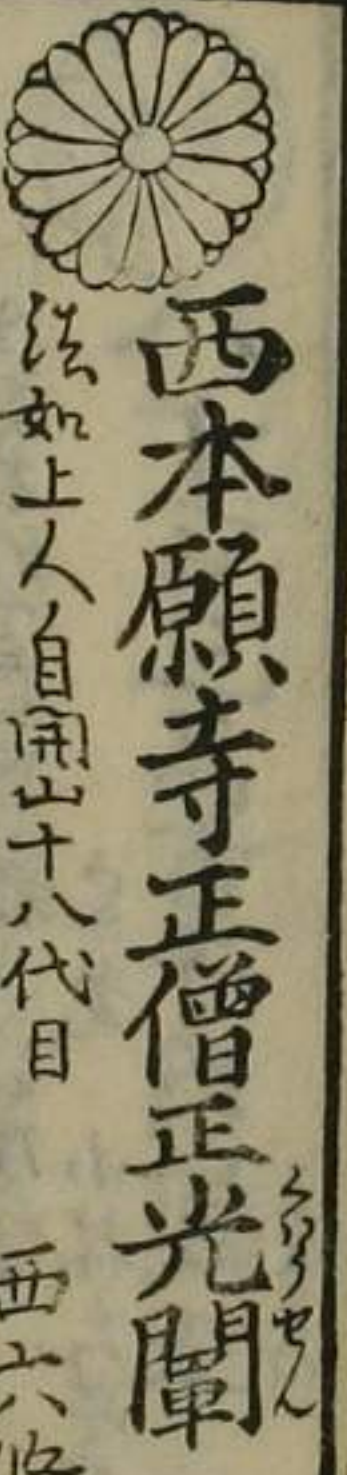 西本願寺正僧正光闡
くわうせん
法如上人自開山十八代目
西六